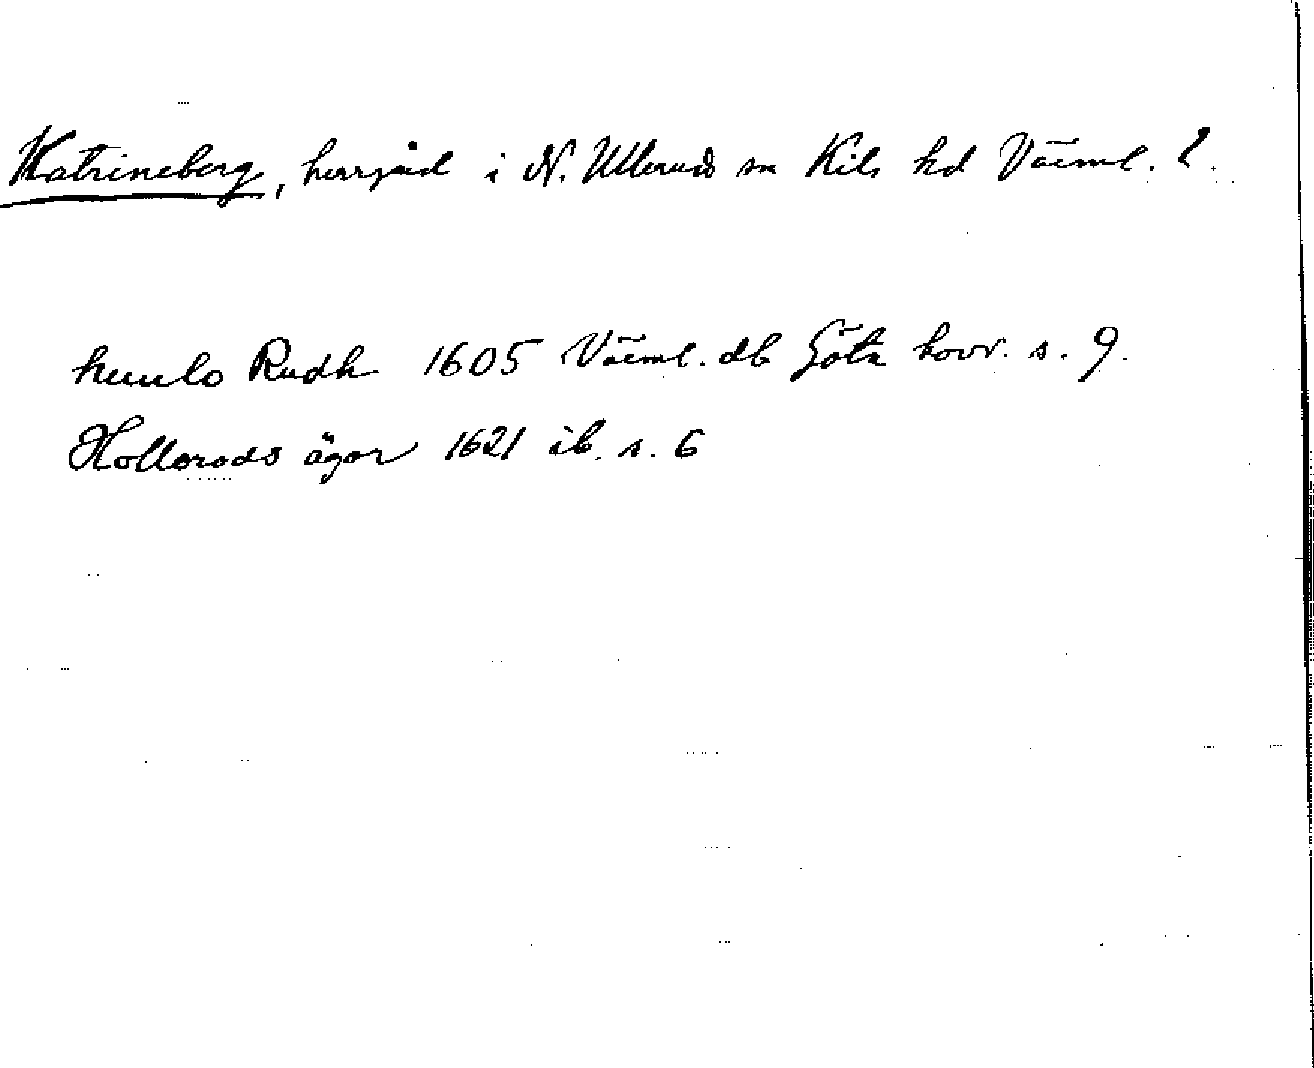 Katrineberg, herrgård i N. Ulleruds sn Kils hd Värml. l.
humlo Rudh 1605 Värml. db Göta hovr. s. 9.
Hollorods ägor 1621 ib. s. 6